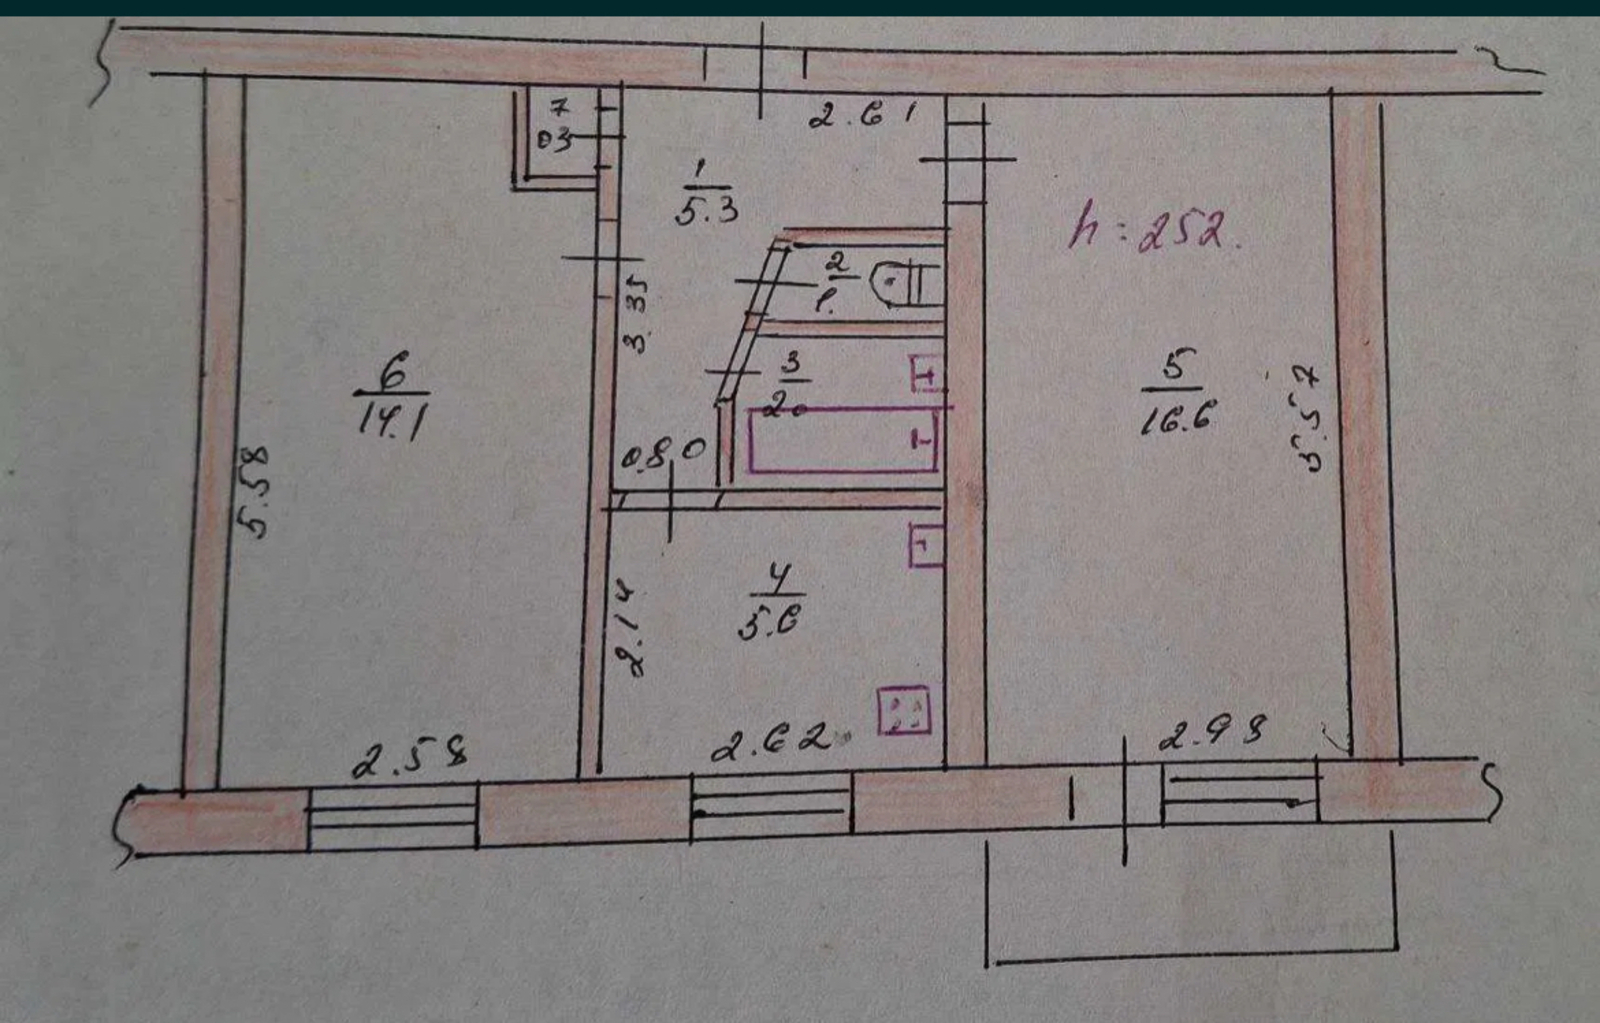 7
03
2.61
1
5.3
h=252.
2
1.
3.35
6
14.1
3
2.0
5
16.6
5.57
0.80
5.58
4
5.6
2.14
2.58
2.62
2.98